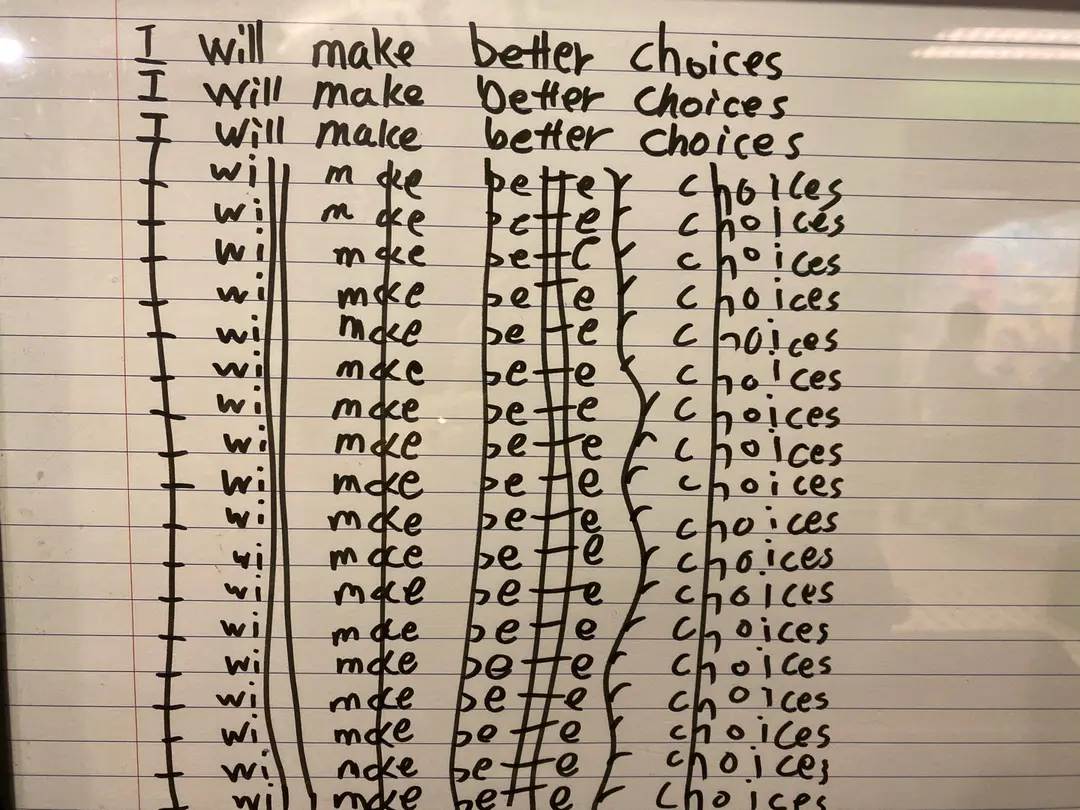 I will make better choices
I will make better choices
I will make better choices
I will make better choices
I will make better choices
I will make better choices
I will make better choices
I will make better choices
I will make better choices
I will make better choices
I will make better choices
I will make better choices
I will make better choices
I will make better choices
I will make better choices
I will make better choices
I will make better choices
I will make better choices
I will make better choices
I will make better choices
I will make better choices